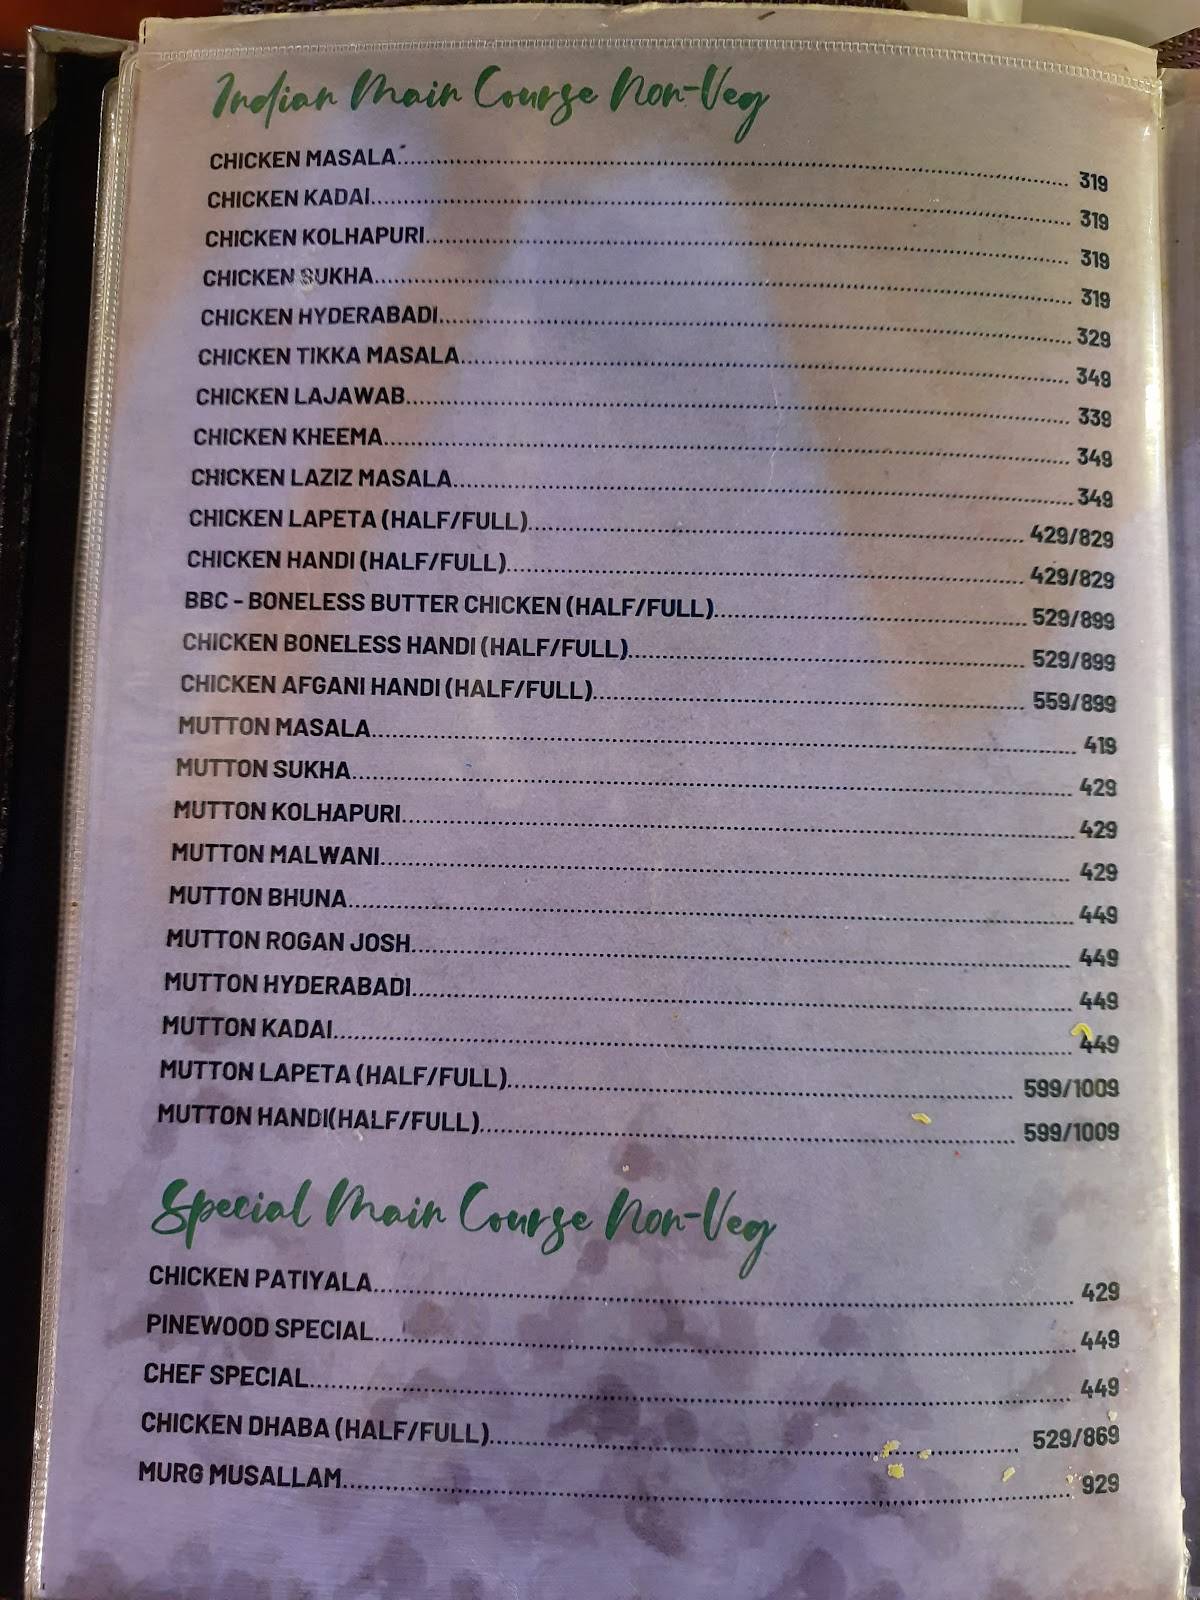 Indian Main Course Non-Veg
CHICKEN MASALA 319
CHICKEN KADAI 319
CHICKEN KOLHAPURI 319
CHICKEN SUKHA 319
CHICKEN HYDERABADI 329
CHICKEN TIKKA MASALA 349
CHICKEN LAJAWAB 339
CHICKEN KHEEMA 349
CHICKEN LAZIZ MASALA 349
CHICKEN LAPETA (HALF/FULL) 429/829
CHICKEN HANDI (HALF/FULL) 429/829
BBC - BONELESS BUTTER CHICKEN (HALF/FULL) 529/899
CHICKEN BONELESS HANDI (HALF/FULL) 529/899
CHICKEN AFGANI HANDI (HALF/FULL) 559/899
MUTTON MASALA 419
MUTTON SUKHA 429
MUTTON KOLHAPURI 429
MUTTON MALWANI 429
MUTTON BHUNA 449
MUTTON ROGAN JOSH 449
MUTTON HYDERABADI 449
MUTTON KADAI 449
MUTTON LAPETA (HALF/FULL) 599/1009
MUTTON HANDI(HALF/FULL) 599/1009
Special Main Course Non-Veg
CHICKEN PATIYALA 429
PINEWOOD SPECIAL 449
CHEF SPECIAL 449
CHICKEN DHABA (HALF/FULL) 529/869
MURG MUSALLAM 929